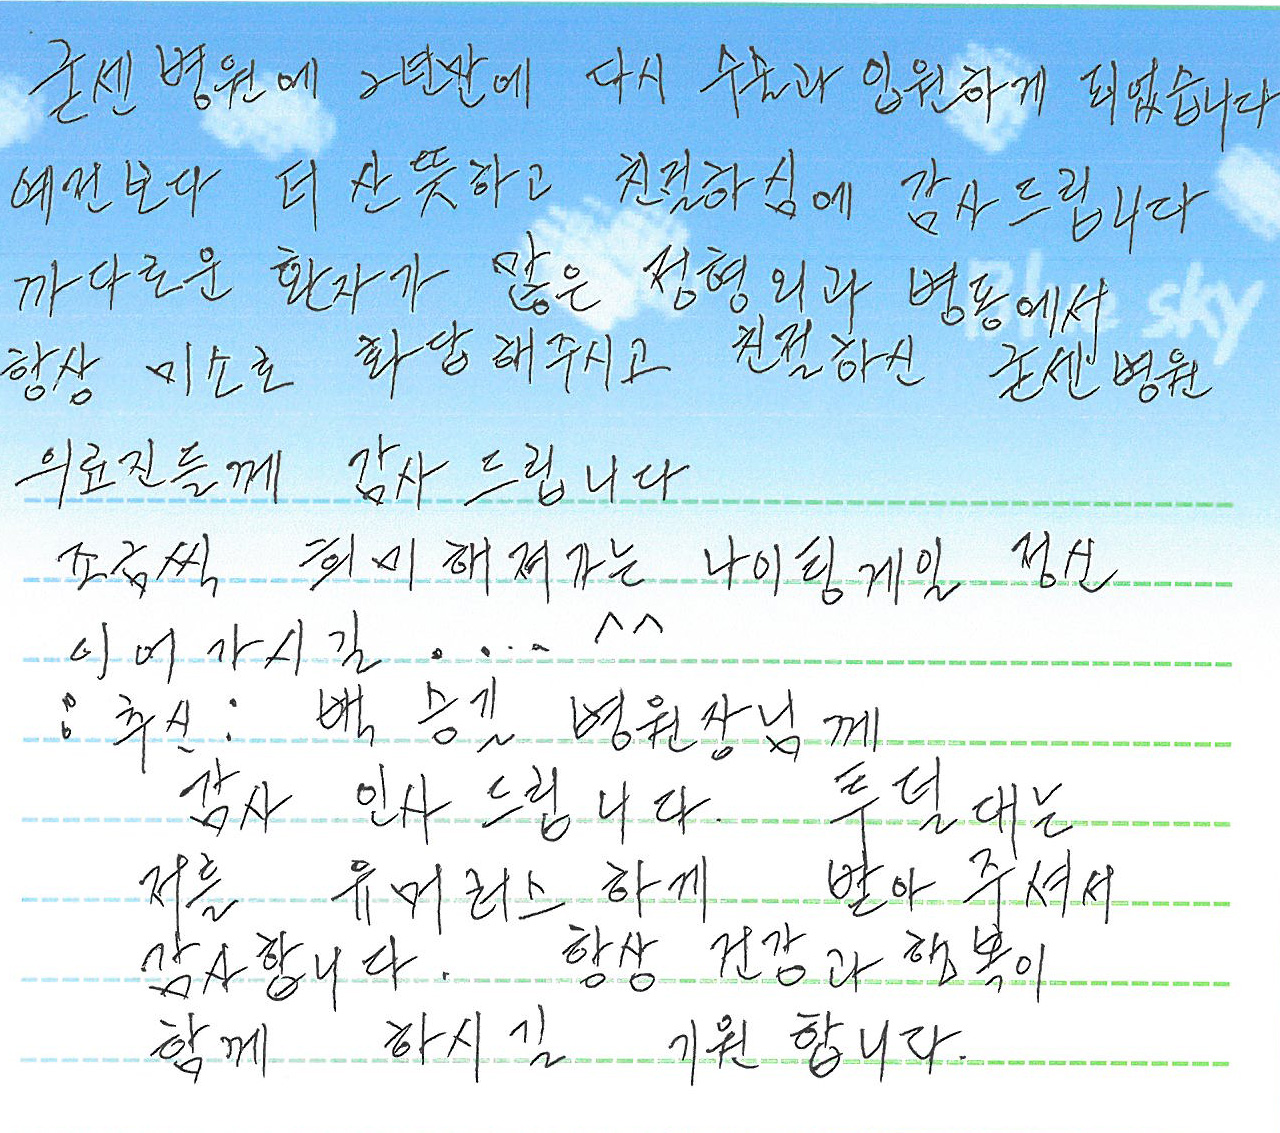 굿센병원에 2년만에 다시 수술과 입원하게 되었습니다
예전보다 더 산뜻하고 친절하심에 감사드립니다
까다로운 환자가 많은 정형외과 병동에서
Blue sky
항상 미소로 화답해주시고 친절하신 굿센병원
의료진들께 감사드립니다
조금씩 희미해져가는 나이팅게일 정신
이어가시길 ..... ^^
추신: 백승길 병원장님께
감사 인사드립니다. 투덜대는
저를 유머러스하게 받아 주셔서
감사합니다. 항상 건강과 행복이
함께 하시길 기원합니다.